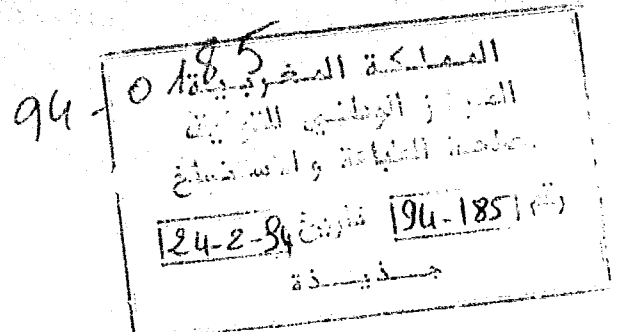 94-0185
المملكة المغربية
المركز الوطني للتوثيق
مصلحة الطباعة و الاستنساخ
رقم 94-185 تاريخ 24-2-94
جــذيــذة